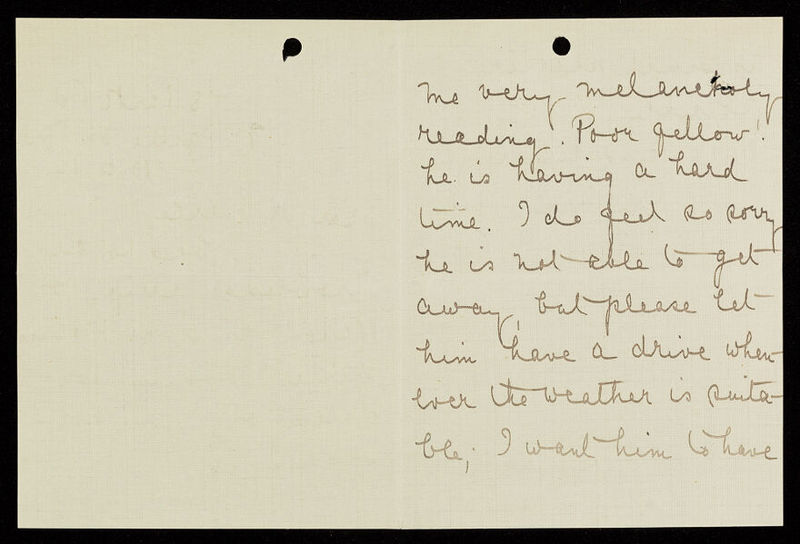 me very melancholy
reading. Poor fellow!
he is having a hard
time. I do feel so sorry
he is not able to get
away, but please let
him have a drive when-
ever the weather is suita-
ble; I want him to have